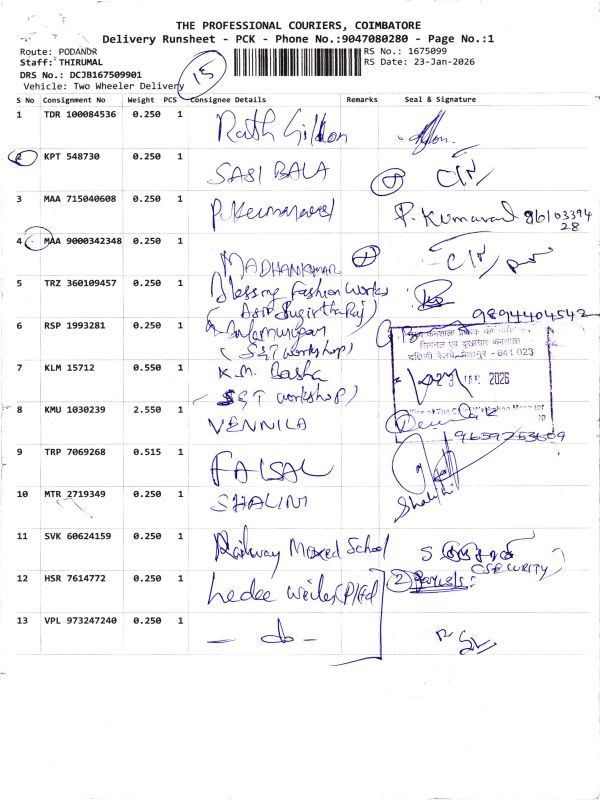 THE PROFESSIONAL COURIERS, COIMBATORE
Delivery Runsheet - PCK - Phone No.:9047080280 - Page No.:1
Route: PODANDR
RS No.: 1675099
Staff: THIRUMAL
RS Date: 23-Jan-2026
DRS No.: DCJB167509901
15
Vehicle: Two Wheeler Delivery
S No Consignment No Weight PCS Consignee Details Remarks Seal & Signature
1 TDR 100084536 0.250 1
2 KPT 548730 0.250 1 SASI BALA
3 MAA 715040608 0.250 1 P. Kumaravel 9610339428
4 MAA 9000342348 0.250 1 MADHANKUMAR
5 TRZ 360109457 0.250 1 Blessing Fashion Works
9894404542
6 RSP 1993281 0.250 1
(S&T workshop)
सिगनल एवं दूरसंचार
641 023
2026
7 KLM 15712 0.550 1 K.M. Basha
S&T workshop)
8 KMU 1030239 2.550 1 VENNILA
9659253609
9 TRP 7069268 0.515 1 FAISAL
10 MTR 2719349 0.250 1 SHALINI Shalini
11 SVK 60624159 0.250 1 Railway Mixed School
(SECURITY)
12 HSR 7614772 0.250 1 2
13 VPL 973247240 0.250 1 - do -